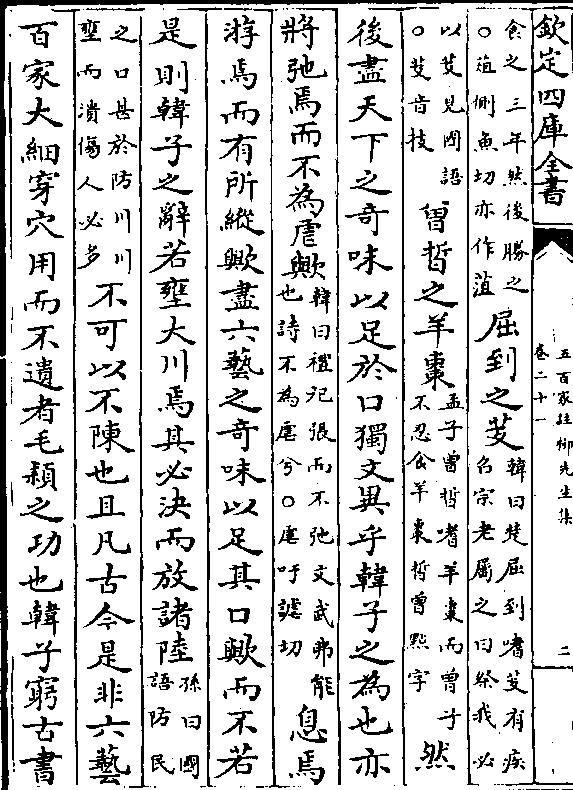 欽定四庫全書
五百家註柳先生集
卷二十一
二
食之三年然後勝之
○葅側魚切亦作菹屈到之芰韓曰楚屈到嗜芰有疾
召宗老屬之曰祭我必
以芰見國語
○芰音技曾晳之羊棗孟子曾晳嗜羊棗而曾子
不忍食羊棗晳曾㸃字然
後盡天下之奇味以足於口獨文異乎韓子之為也亦
將弛焉而不為虐歟韓曰禮記張而不弛文武弗能
也詩不為虐兮○虐吁謔切息焉
游焉而有所縱歟盡六藝之奇味以足其口歟而不若
是則韓子之辭若壅大川焉其必決而放諸陸孫曰國
語防民
之口甚於防川川
壅而潰傷人必多不可以不陳也且凡古今是非六藝
百家大細穿穴用而不遺者毛穎之功也韓子窮古書